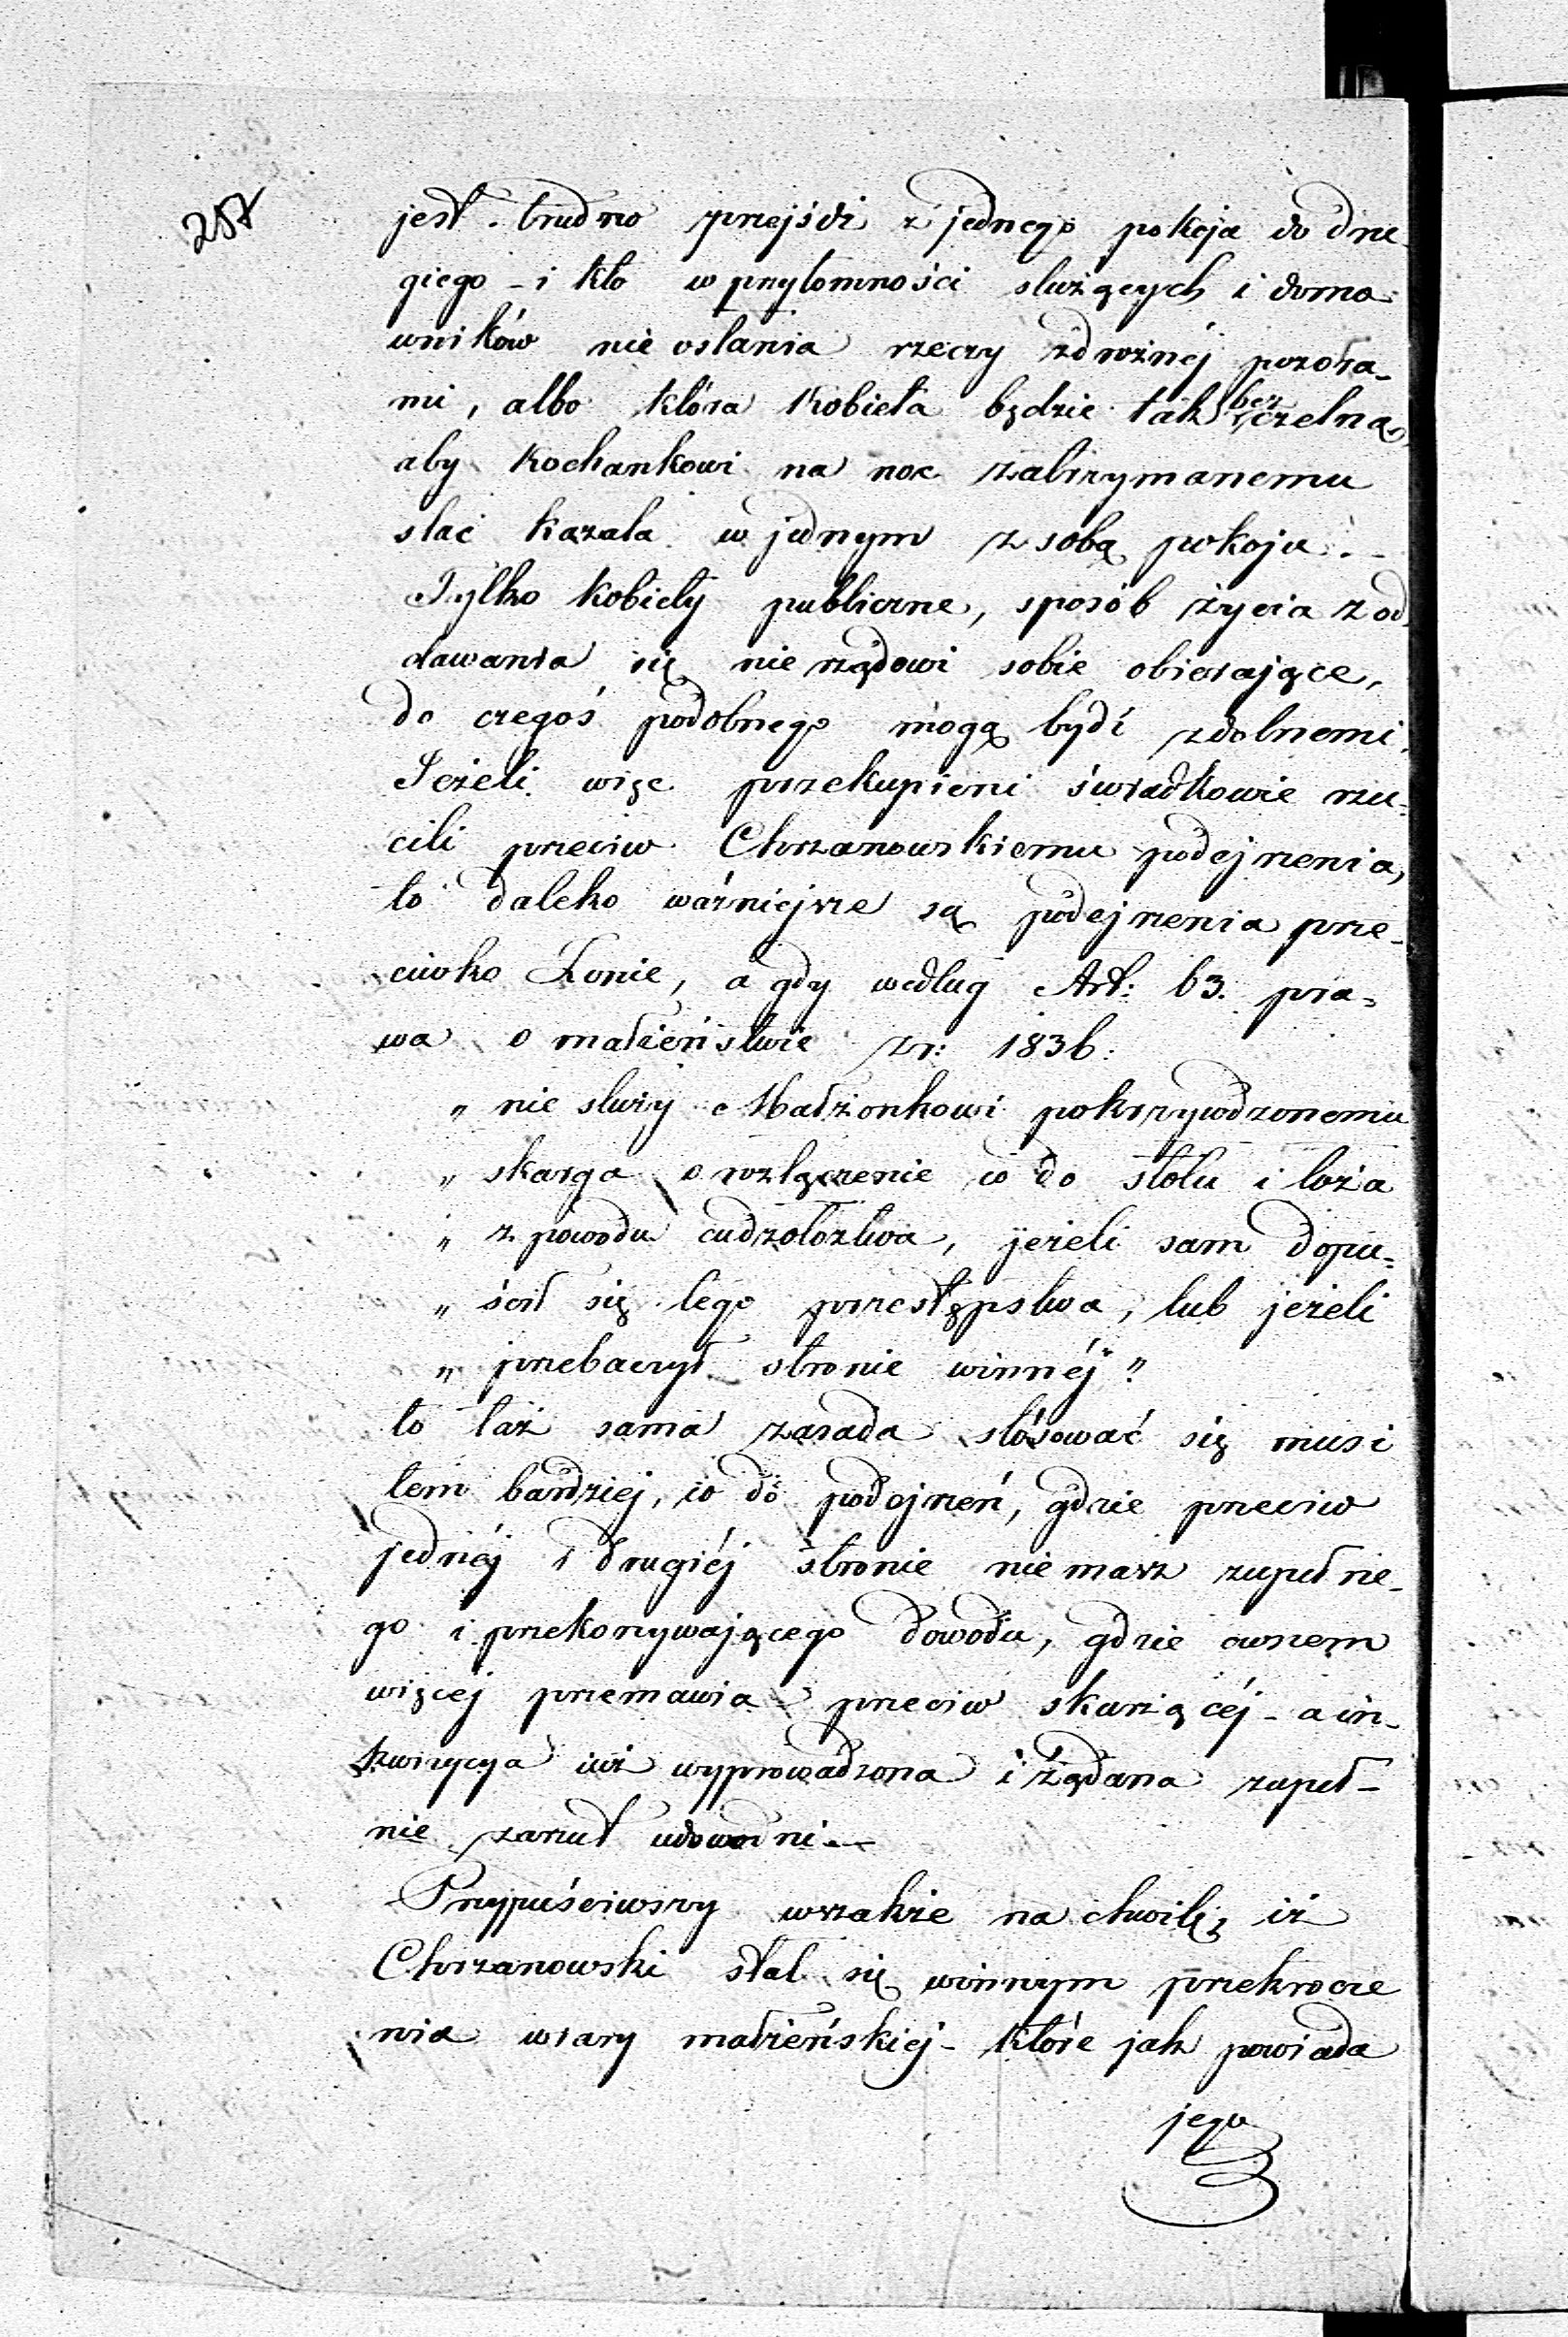 257
jest trudno przejśdź z jednego pokoja do dru-
giego – i kto w przytomności służących i domo-
wników nie osłania rzeczy zdrożnéj pozora-
mi, albo która kobieta będzie tak bezczelną,
aby kochankowi na noc zatrzymanemu
słać kazała w jednym z sobą pokoju. –
Tylko kobiety publiczne, sposób życia z od-
dawania się nierządowi sobie obierające,
do czegoś podobnego mogą bydź zdolnemi.
Jeżeli więc przekupieni świadkowie rzu-
cili przeciw Chrzanowskiemu podejrzenia,
to daleko ważniejsze są podejrzenia prze-
ciwko Żonie, a gdy według Art: 63. pra-
wa o małżeństwie z r: 1836.
„ nie służy Małżonkowi pokrzywdzonemu
„ skarga o rozłączenie co do stołu i łoża
„ z powodu cudzołoztwa, jeżeli sam dopu-
„ ścił się tego przestępstwa, lub jeżeli
„ przebaczył stronie winnéj"
to taż sama zasada stósować się musi
tem bardziej, co do podejrzeń, gdzie przeciw
jednéj i drugiéj stronie niemasz zupełne-
go i przekonywającego dowodu, gdzie owszem
więcej przemawia przeciw skarżącéj – a in-
kwizycya już wyprowadzona i żądana zupeł-
nie zarzut udowodni. –
Przypuściwszy wszakże na chwilę, iż
Chrzanowski stał się winnym przekrocze
nia wiary małżeńskiej – które jak powiada
jego